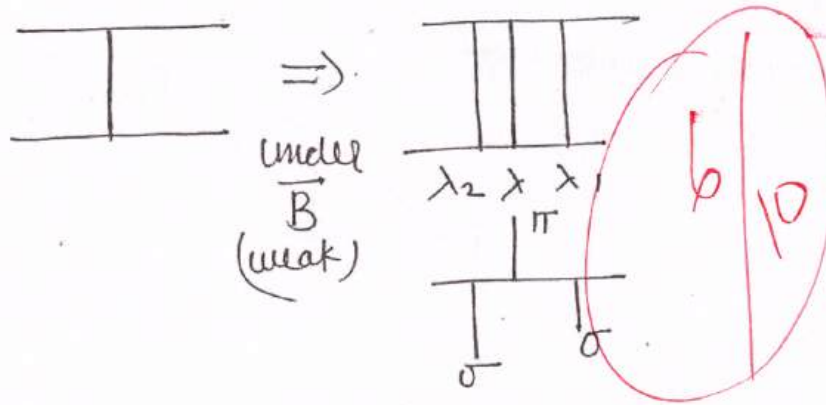 ⇒
under
B
(weak)
λ2 λ λ1
π
σ σ
6
10